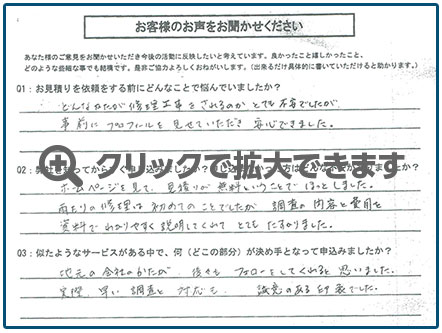 お客様のお声をお聞かせください
あなた様のご意見をお聞かせいただき今後の活動に反映したいと考えています。良かったこと嬉しかったこと、
どのような些細な事でも結構です。是非ご協力よろしくおねがいします。（出来るだけ具体的に書いていただけると助かります。）
01：お見積りを依頼をする前にどんなことで悩んでいましたか？
どんなかたが修理工事をされるのか とても不安でしたが
事前にプロフィールを見せていただき 安心できました。
クリックで拡大できます
02：弊社を知ってから
ホームページを見て、見積りが無料ということで ほっとしました。
雨もりの修理は初めてのことでしたが 調査の内容と費用を
資料でわかりやすく説明してくれて とてもたすかりました。
03：似たようなサービスがある中で、何（どこの部分）が決め手となって申込みましたか？
地元の会社のかたが 後々も フォローをしてくれると思いました。
実際 早い 調査と 対応も 誠意のある印象でした。